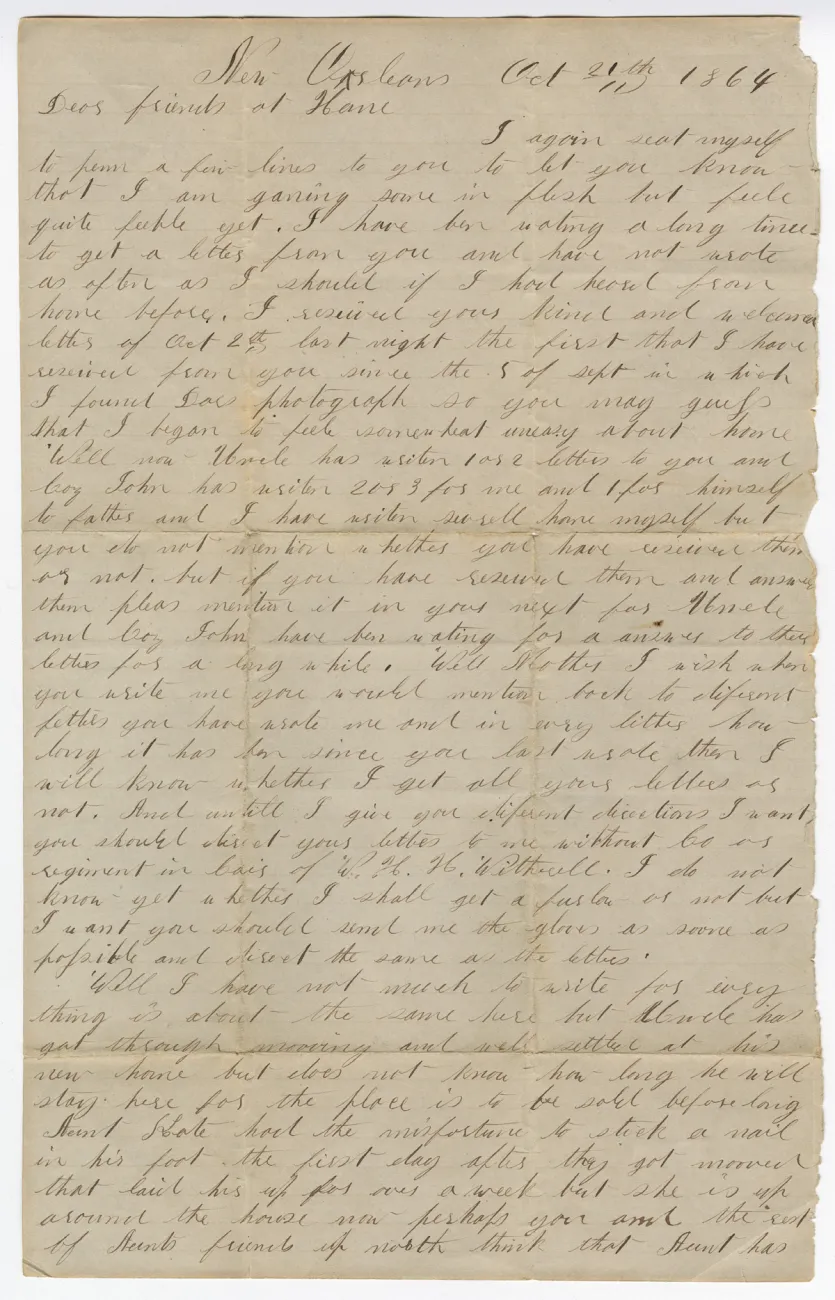 New Orleans Oct 21th 1864
Dear friends at Home
I again seat myself
to penn a few lines to you to let you know
that I am ganing some in flesh but feele
quite feeble yet. I have ben wating a long time
to get a letter from you and have not wrote
as often as I should if I had heard from
home before. I reseived your kind and welcome
letter of Oct 2th last night the first that I have
reseived from you since the 5 of sept in which
I found Does photograph so you may guess
that I began to feele somewhat uneasy about home
Well now Uncle has writen 1 or 2 letters to you and
Coz John has writen 2 or 3 for me and 1 for himself
to father and I have writen sevrell home myself but
you do not mention whether you have reseived them
or not. but if you have reseived them and answer
them pleas mention it in your next for Uncle
and Coz John have ben wating for a answer to there
letters for a long while. Well Mother I wish when
you write me you would mention back to diferent
letters you have wrote me and in evry letter how
long it has ben since you last wrote then I
will know whether I get all your letters or
not. And untill I give you diferent directions I want
you should direct your letters to me without Co or
regiment in Cair of W. H. H. Witherell. I do not
know yet whether I shall get a furlow or not but
I want you should send me the gloves as soone as
possible and direct the same as the letters.
Well I have not much to write for evry
thing is about the same here but Uncle has
got through mooving and well settled at his
new home but does not know how long he will
stay here for the place is to be sold before long
Aunt Kate had the misfortune to stick a nail
in her foot the first day after they got mooved
that laid her up for over a week but she is up
around the house now perhaps you and the rest
of Aunts friends up north think that Aunt has